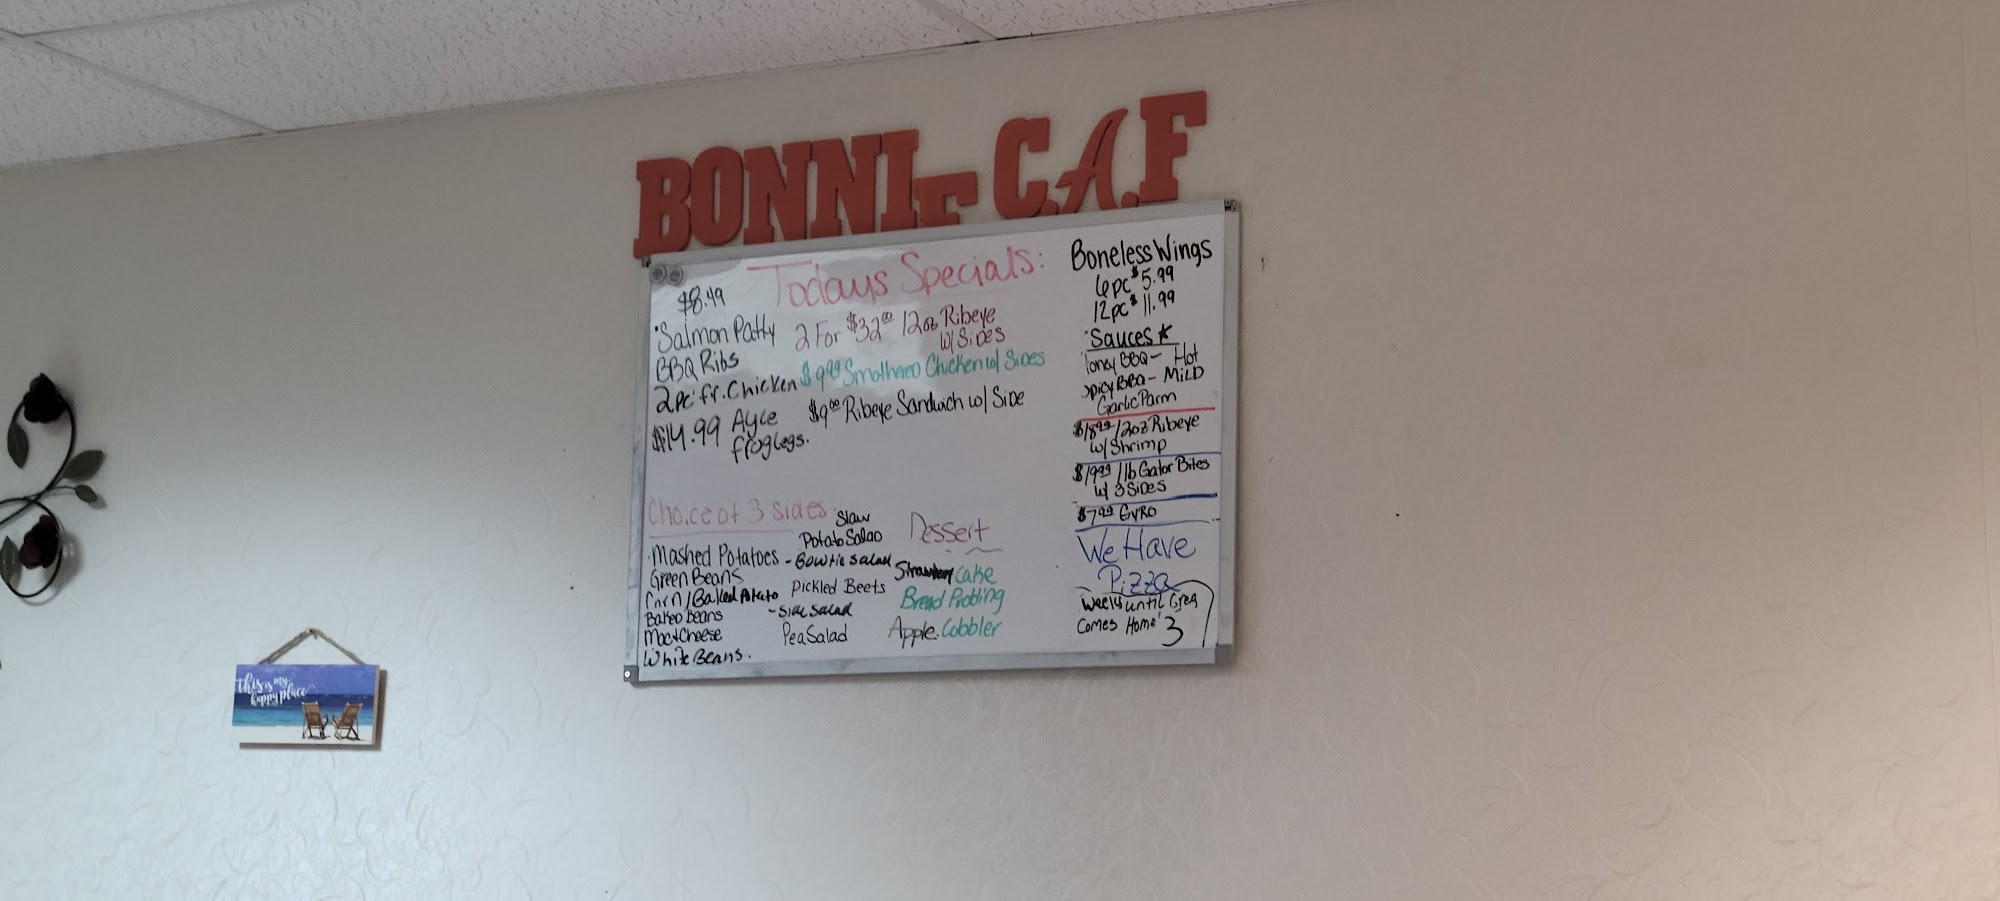 BONNIE C.A.F
Todays Specials:
$8.49
Salmon Patty
BBQ Ribs
2pc fr. Chicken
$14.99 Ayce
froglegs.
2 For $32.00 12oz Ribeye
w/ Sides
$9.99 Smothered Chicken w/ Sides
$9.00 Ribeye Sandwich w/ Side
Boneless Wings
6pc $5.99
12pc $11.99
Sauces *
Honey BBQ - Hot
Spicy BBQ - Mild
Garlic Parm
$18.99 12oz Ribeye
w/ Shrimp
$19.99 1lb Gator Bites
w/ 3 Sides
$7.99 Gyro
We Have
Pizza
Weeks until Greg
Comes Home 3
Choice of 3 sides
Mashed Potatoes
Green Beans
Corn / Baked Potato
Baked Beans
Mac & Cheese
White Beans.
Slaw
Potato Salad
- Bowtie Salad
Pickled Beets
- Side Salad
Pea Salad
Dessert
Strawberry Cake
Bread Pudding
Apple Cobbler
this is my
happy place